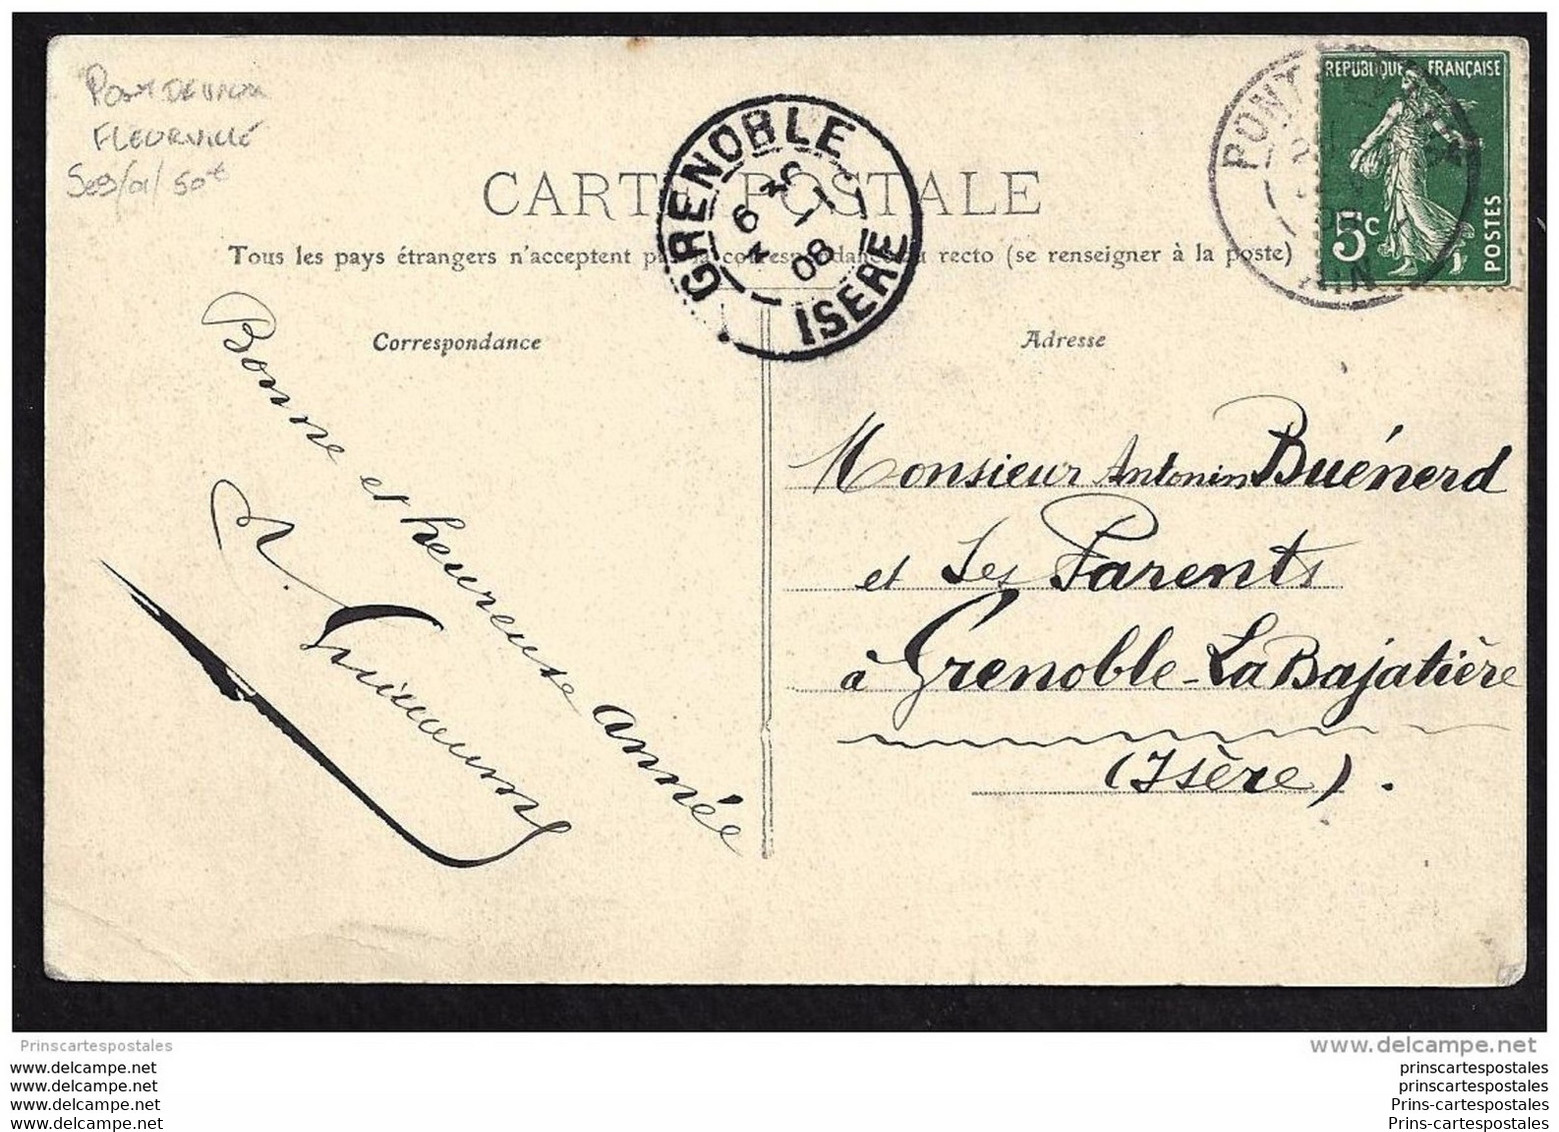 PONT DE VAUX
FLEURVILLE
RÉPUBLIQUE FRANÇAISE
5c
POSTES
PONT
AIN
GRENOBLE
6
1
08
ISERE
CARTE POSTALE
Tous les pays étrangers n'acceptent pas la correspondance au recto (se renseigner à la poste)
Correspondance
Adresse
Bonne et heureuse année
Monsieur Antonin Buénerd
et Ses Parents
à Grenoble - La Bajatière
(Isère).
Prinscartespostales
www.delcampe.net
www.delcampe.net
www.delcampe.net
www.delcampe.net
www.delcampe.net
prinscartespostales
prinscartespostales
Prins-cartespostales
Prins-cartespostales